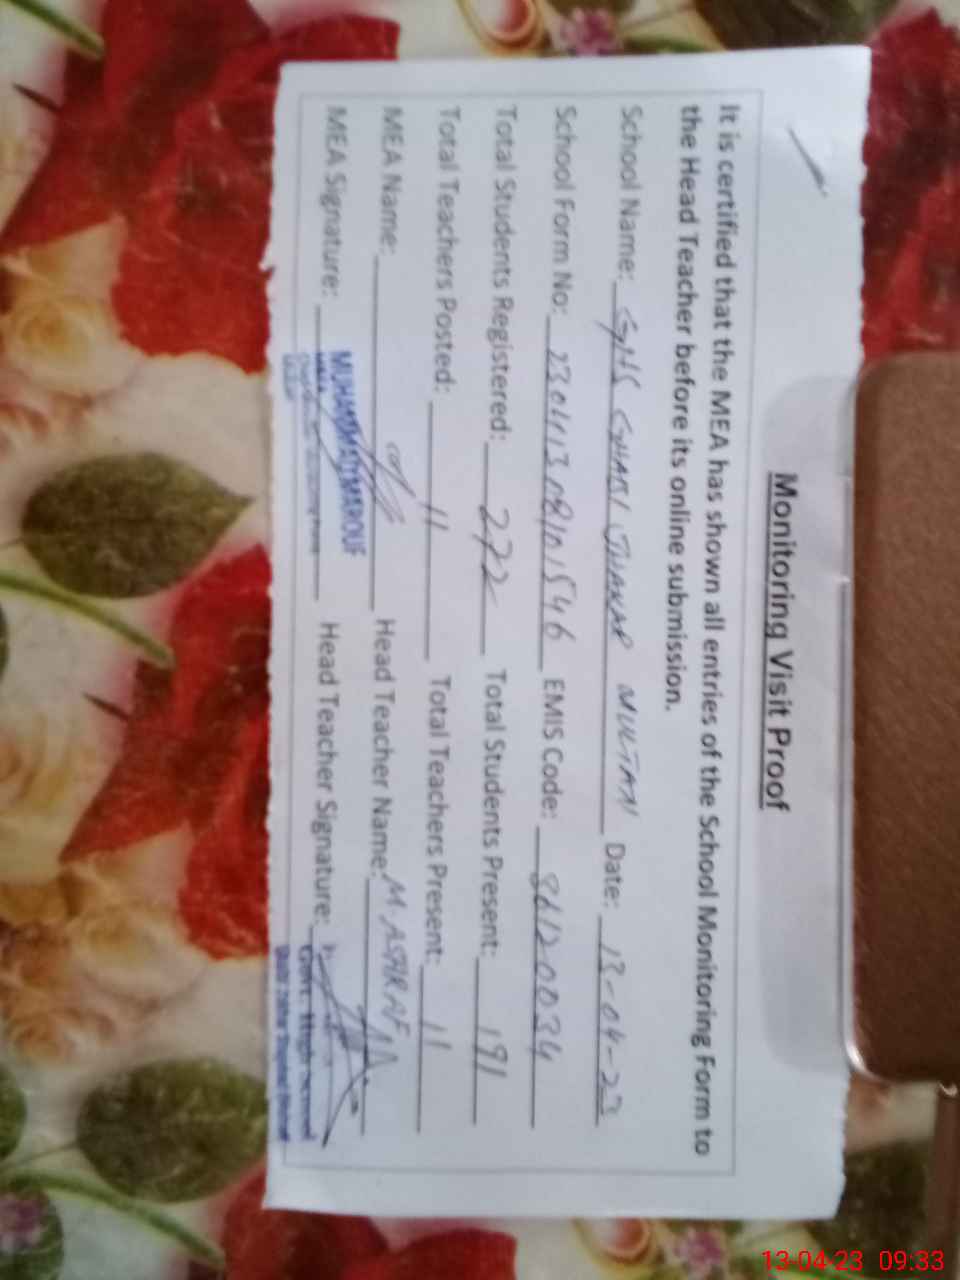 Monitoring Visit Proof
It is certified that the MEA has shown all entries of the School Monitoring Form to
the Head Teacher before its online submission.
School Name: GHS MULTAN Date: 13-04-23
School Form No: EMIS Code:
Total Students Registered: 272 Total Students Present: 191
Total Teachers Posted: 11 Total Teachers Present: 11
MEA Name: Head Teacher Name: M ASHRAF
MEA Signature: Head Teacher Signature:
MUHAMMAD MAROUF
13-04-23 09:33